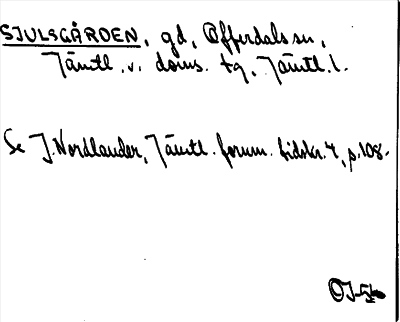 SJULSGÅRDEN, gd, Offerdals sn,
Jämtl. v. doms. tg, Jämtl. l.
Se J. Nordlander, Jämtl. fornm. tidskr. 4, p. 108.